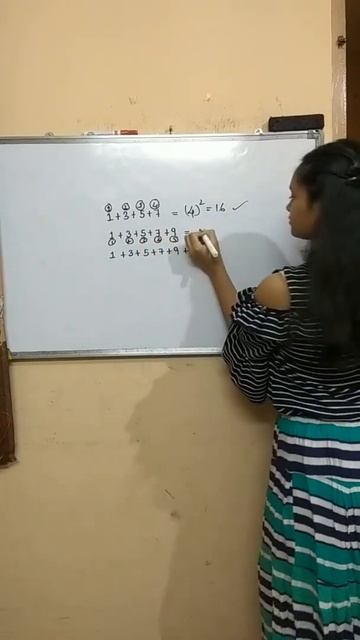 ① ② ③ ④
1 + 3 + 5 + 7 = (4)² = 16 ✓
1 + 3 + 5 + 7 + 9 =
① ② ③ ④ ⑤
1 + 3 + 5 + 7 + 9 +